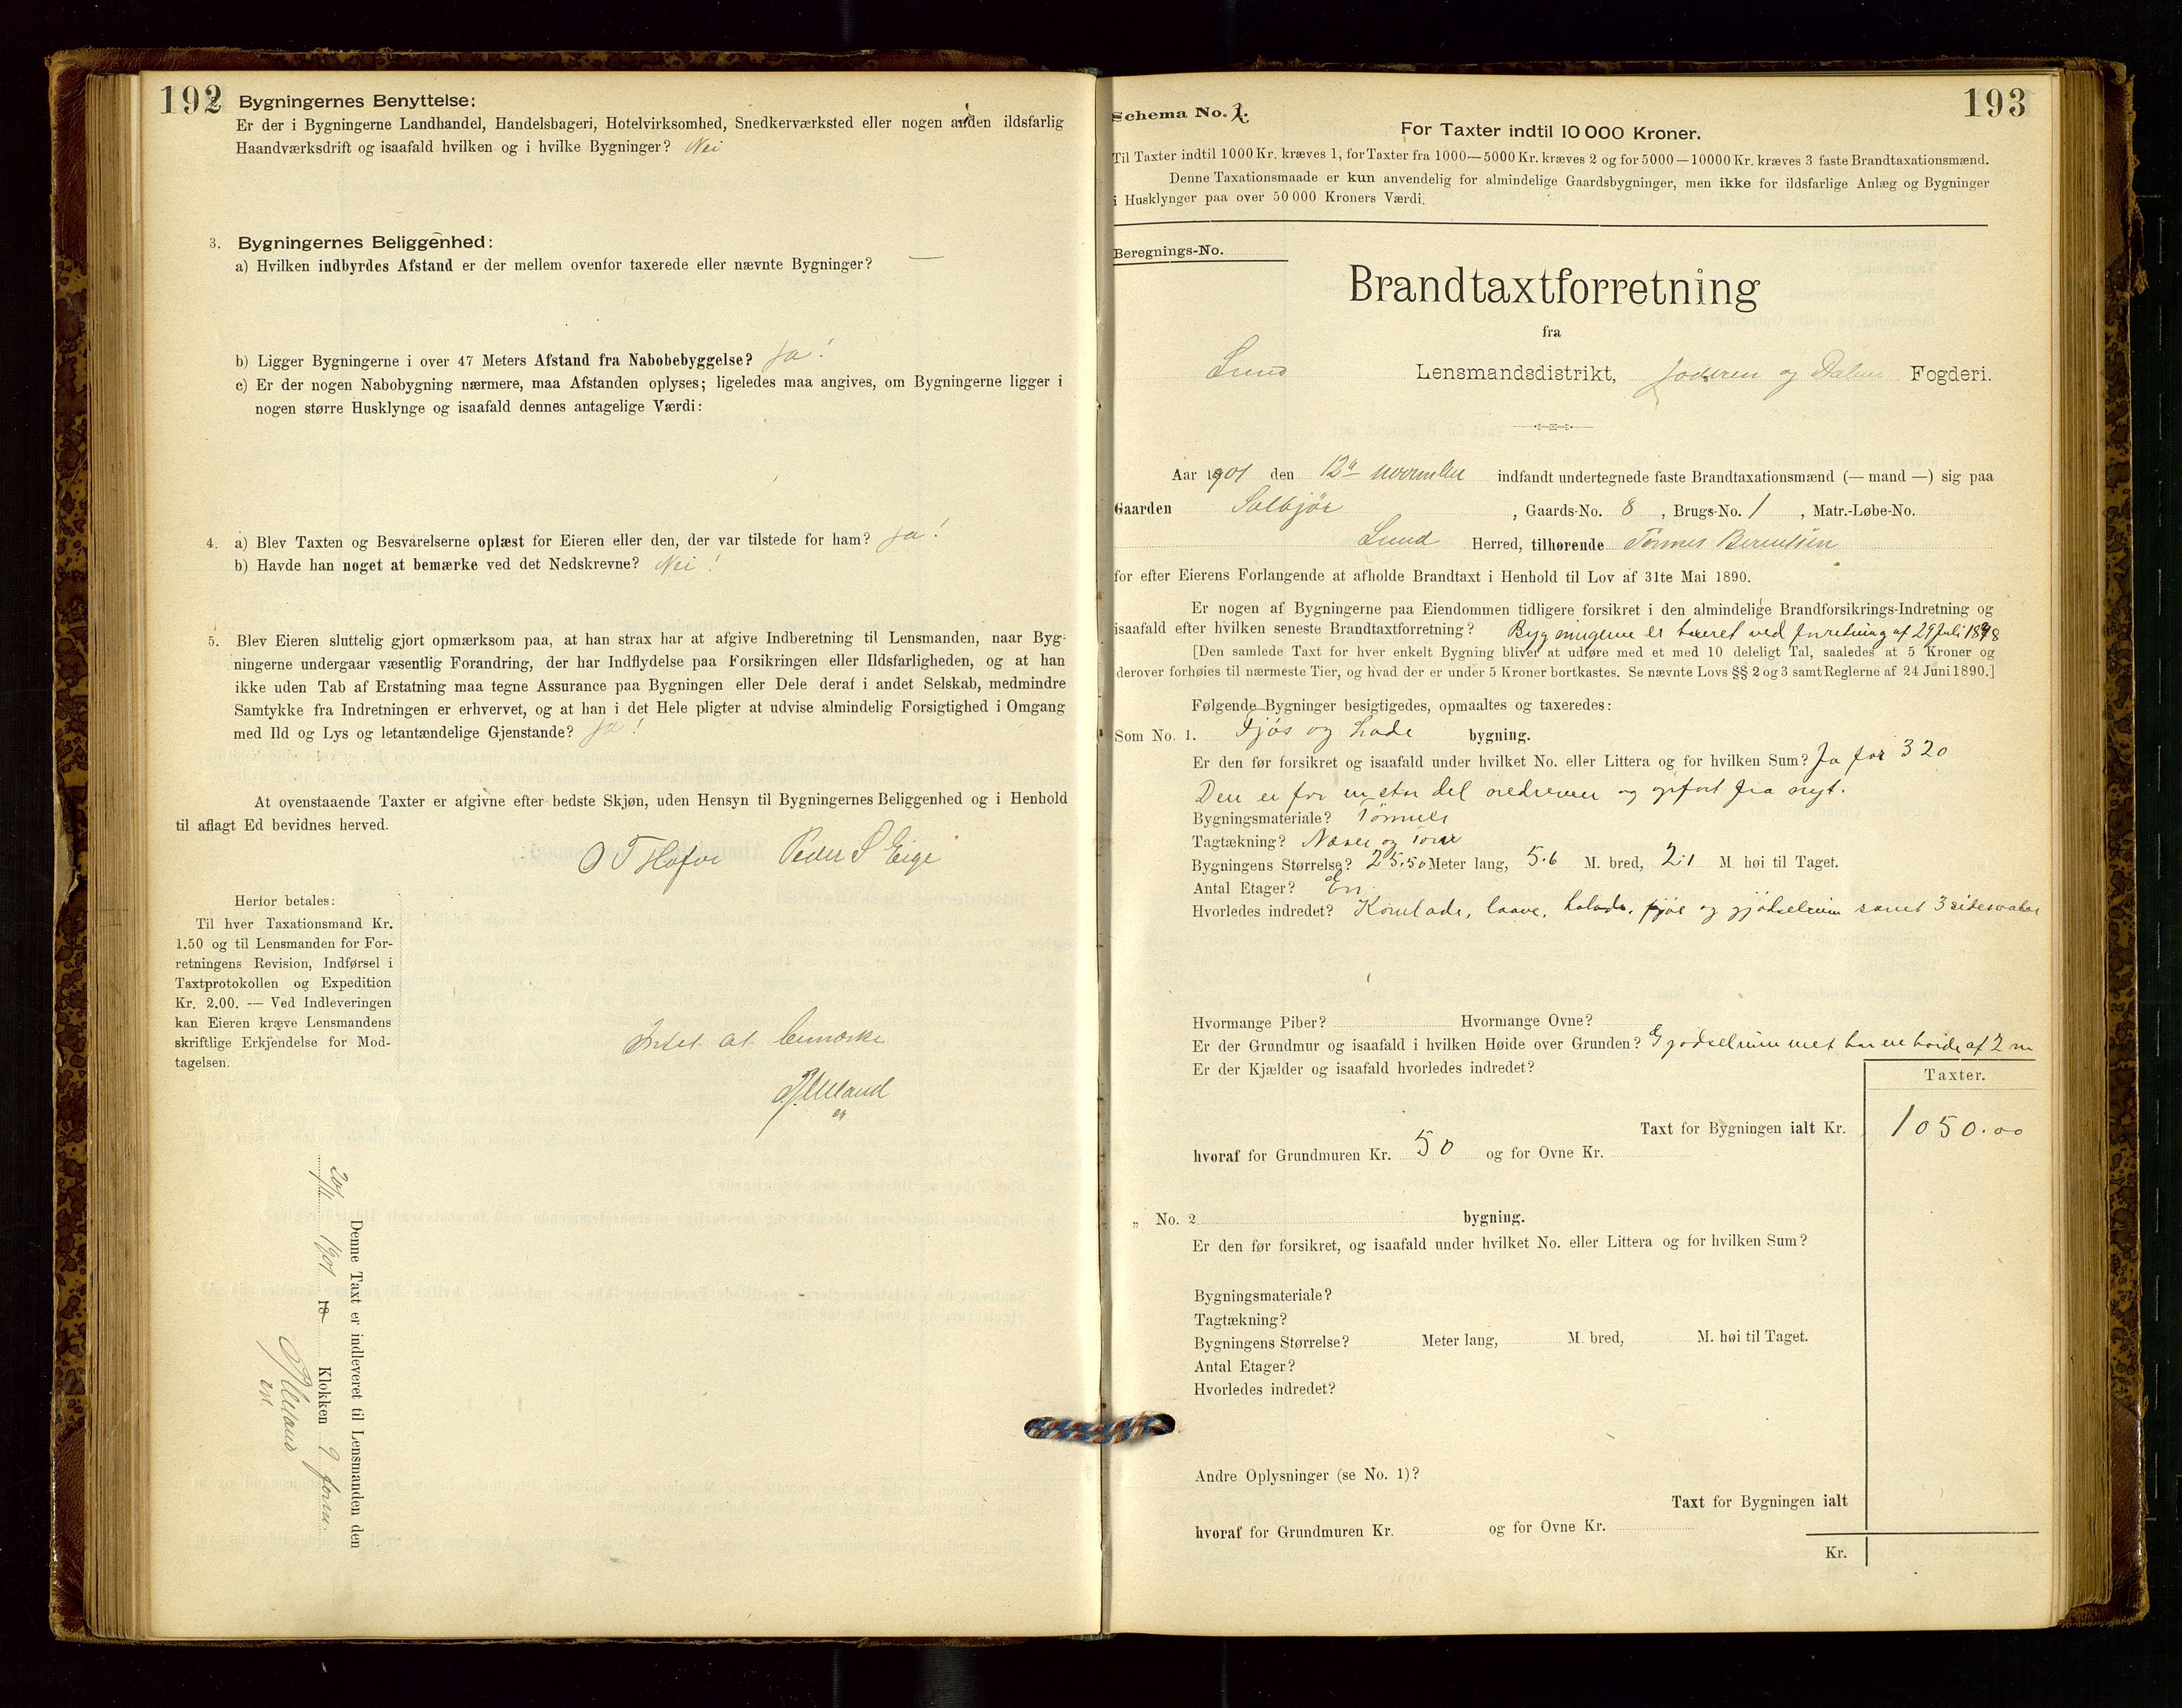 192 Bygningernes Benyttelse:
Er der i Bygningerne Landhandel, Handelsbageri, Hotelvirksomhed, Snedkerværksted eller nogen anden ildsfarlig
Haandværksdrift og isaafald hvilken og i hvilke Bygninger? Nei
3. Bygningernes Beliggenhed:
a) Hvilken indbyrdes Afstand er der mellem ovenfor taxerede eller nævnte Bygninger? —
b) Ligger Bygningerne i over 47 Meters Afstand fra Nabobebyggelse? Ja!
c) Er der nogen Nabobygning nærmere, maa Afstanden oplyses; ligeledes maa angives, om Bygningerne ligger i
nogen større Husklynge og isaafald dennes antagelige Værdi:
4. a) Blev Taxten og Besvarelserne oplæst for Eieren eller den, der var tilstede for ham? Ja!
b) Havde han noget at bemærke ved det Nedskrevne? Nei!
5. Blev Eieren sluttelig gjort opmærksom paa, at han strax har at afgive Indberetning til Lensmanden, naar Byg-
ningerne undergaar væsentlig Forandring, der har Indflydelse paa Forsikringen eller Ildsfarligheden, og at han
ikke uden Tab af Erstatning maa tegne Assurance paa Bygningen eller Dele deraf i andet Selskab, medmindre
Samtykke fra Indretningen er erhvervet, og at han i det Hele pligter at udvise almindelig Forsigtighed i Omgang
med Ild og Lys og letantændelige Gjenstande? Ja!
At ovenstaaende Taxter er afgivne efter bedste Skjøn, uden Hensyn til Bygningernes Beliggenhed og i Henhold
til aflagt Ed bevidnes herved.
O T Hafoe Peder S Eige
Herfor betales:
Til hver Taxationsmand Kr.
1.50 og til Lensmanden for For-
retningens Revision, Indførsel i
Taxtprotokollen og Expedition
Kr. 2.00. — Ved Indleveringen
kan Eieren kræve Lensmandens
skriftlige Erkjendelse for Mod-
tagelsen.
Intet at bemærke
Denne Taxt er indleveret til Lensmanden den
20/11 1901 18 Klokken 9 form.
193
Schema No. 1.
For Taxter indtil 10 000 Kroner.
Til Taxter indtil 1000 Kr. kræves 1, for Taxter fra 1000—5000 Kr. kræves 2 og for 5000—10000 Kr. kræves 3 faste Brandtaxationsmænd.
Denne Taxationsmaade er kun anvendelig for almindelige Gaardsbygninger, men ikke for ildsfarlige Anlæg og Bygninger
i Husklynger paa over 50 000 Kroners Værdi.
Beregnings-No.
Brandtaxtforretning
fra
Lund Lensmandsdistrikt, Jæderen og Dalene Fogderi.
Aar 1901 den 12te november indfandt undertegnede faste Brandtaxationsmænd (— mand —) sig paa
Gaarden Salbjør, Gaards-No. 8, Brugs-No. 1, Matr.-Løbe-No.
Lund Herred, tilhørende Tønnes Berentsen
for efter Eierens Forlangende at afholde Brandtaxt i Henhold til Lov af 31te Mai 1890.
Er nogen af Bygningerne paa Eiendommen tidligere forsikret i den almindelige Brandforsikrings-Indretning og
isaafald efter hvilken seneste Brandtaxtforretning? Bygningerne er taxeret ved Inretning af 29 Juli 1898
[Den samlede Taxt for hver enkelt Bygning bliver at udføre med et med 10 deleligt Tal, saaledes at 5 Kroner og
derover forhøies til nærmeste Tier, og hvad der er under 5 Kroner bortkastes. Se nævnte Lovs §§ 2 og 3 samt Reglerne af 24 Juni 1890.]
Følgende Bygninger besigtigedes, opmaaltes og taxeredes:
Som No. 1. Fjøs og Lade bygning.
Er den før forsikret og isaafald under hvilket No. eller Littera og for hvilken Sum? Ja for 320
Den er for en stor del nedreven og opført fra nyt.
Bygningsmateriale? Tømmer
Tagtækning? Næver og torv
Bygningens Størrelse? 25.50 Meter lang, 5.6 M. bred, 2.1 M. høi til Taget.
Antal Etager? En
Hvorledes indredet? Kornlade, laave, hølade, fjøs og gjødselrum samt 3
Hvormange Piber? Hvormange Ovne?
Er der Grundmur og isaafald i hvilken Høide over Grunden? Gjødselrummet har en høide af 2 m
Er der Kjælder og isaafald hvorledes indredet?
Taxter.
Taxt for Bygningen ialt Kr. 1050.00
hvoraf for Grundmuren Kr. 50 og for Ovne Kr.
„ No. 2 bygning.
Er den før forsikret, og isaafald under hvilket No. eller Littera og for hvilken Sum?
Bygningsmateriale?
Tagtækning?
Bygningens Størrelse? Meter lang, M. bred, M. høi til Taget.
Antal Etager?
Hvorledes indredet?
Andre Oplysninger (se No. 1)?
Taxt for Bygningen ialt
hvoraf for Grundmuren Kr. og for Ovne Kr.
Kr.